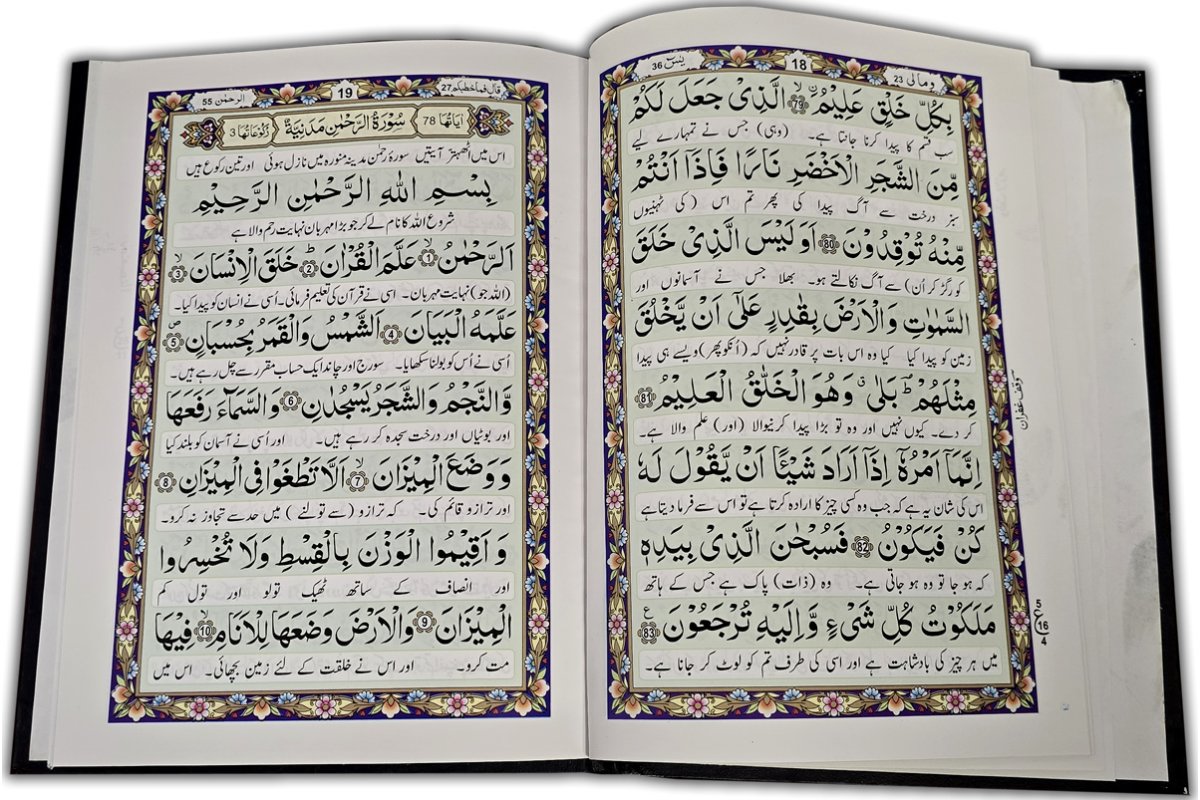 یٰسٓ 36
18
وَمَالِیَ 23
بِكُلِّ خَلْقٍ عَلِیْمُ ۙ 79 الَّذِیْ جَعَلَ لَكُمْ
سب قسم کا پیدا کرنا جانتا ہے۔ (وہی) جس نے تمہارے لیے
مِّنَ الشَّجَرِ الْاَخْضَرِ نَارًا فَاِذَاۤ اَنْتُمْ
سبز درخت سے آگ پیدا کی پھر تم اس (کی ٹہنیوں
مِّنْهُ تُوْقِدُوْنَ 80 اَوَ لَیْسَ الَّذِیْ خَلَقَ
کو رگڑ کر اُن) سے آگ نکالتے ہو۔ بھلا جس نے آسمانوں اور
السَّمٰوٰتِ وَالْاَرْضَ بِقٰدِرٍ عَلٰۤی اَنْ یَّخْلُقَ
زمین کو پیدا کیا کیا وہ اس بات پر قادر نہیں کہ (اُنکو پھر) ویسے ہی پیدا
مِثْلَهُمْ ؕ بَلٰی ۗ وَهُوَ الْخَلّٰقُ الْعَلِیْمُ 81
کر دے۔ کیوں نہیں اور وہ تو بڑا پیدا کرنیوالا (اور) علم والا ہے۔
اِنَّمَاۤ اَمْرُهٗۤ اِذَاۤ اَرَادَ شَیْئًا اَنْ یَّقُوْلَ لَهٗ
اس کی شان یہ ہے کہ جب وہ کسی چیز کا ارادہ کرتا ہے تو اس سے فرما دیتا ہے
كُنْ فَیَكُوْنُ 82 فَسُبْحٰنَ الَّذِیْ بِیَدِهٖ
کہ ہو جا تو وہ ہو جاتی ہے۔ وہ (ذات) پاک ہے جس کے ہاتھ
مَلَكُوْتُ كُلِّ شَیْءٍ وَّاِلَیْهِ تُرْجَعُوْنَ 83 ع
میں ہر چیز کی بادشاہت ہے اور اسی کی طرف تم کو لوٹ کر جانا ہے۔
وقف غفران
5
16
4
الرحمٰن 55
19
قال فما خطبکم 27
اٰیَاتُهَا 78 سُوْرَةُ الرَّحْمٰنِ مَدَنِیَّةٌ رُكُوْعَاتُهَا 3
اس میں اٹھہتر آیتیں سورۂ رحمٰن مدینہ منورہ میں نازل ہوئی اور تین رکوع ہیں
بِسْمِ اللهِ الرَّحْمٰنِ الرَّحِیْمِ
شروع اللہ کا نام لے کر جو بڑا مہربان نہایت رحم والا ہے
اَلرَّحْمٰنُ ۙ 1 عَلَّمَ الْقُرْاٰنَ ؕ 2 خَلَقَ الْاِنْسَانَ ۙ 3
(اللہ جو) نہایت مہربان۔ اسی نے قرآن کی تعلیم فرمائی۔ اُسی نے انسان کو پیدا کیا۔
عَلَّمَهُ الْبَیَانَ 4 اَلشَّمْسُ وَالْقَمَرُ بِحُسْبَانٍ ۪ 5
اُسی نے اُس کو بولنا سکھایا۔ سورج اور چاند ایک حساب مقرر سے چل رہے ہیں۔
وَّالنَّجْمُ وَالشَّجَرُ یَسْجُدٰنِ 6 وَالسَّمَآءَ رَفَعَهَا
اور بوٹیاں اور درخت سجدہ کر رہے ہیں۔ اور اُسی نے آسمان کو بلند کیا
وَ وَضَعَ الْمِیْزَانَ ۙ 7 اَلَّا تَطْغَوْا فِی الْمِیْزَانِ 8
اور ترازو قائم کی۔ کہ ترازو (سے تولنے) میں حد سے تجاوز نہ کرو۔
وَ اَقِیْمُوا الْوَزْنَ بِالْقِسْطِ وَلَا تُخْسِرُوا
اور انصاف کے ساتھ ٹھیک تولو اور تول کم
الْمِیْزَانَ 9 وَالْاَرْضَ وَضَعَهَا لِلْاَنَامِ ۙ 10 فِیْهَا
مت کرو۔ اور اس نے خلقت کے لئے زمین بچھائی۔ اس میں